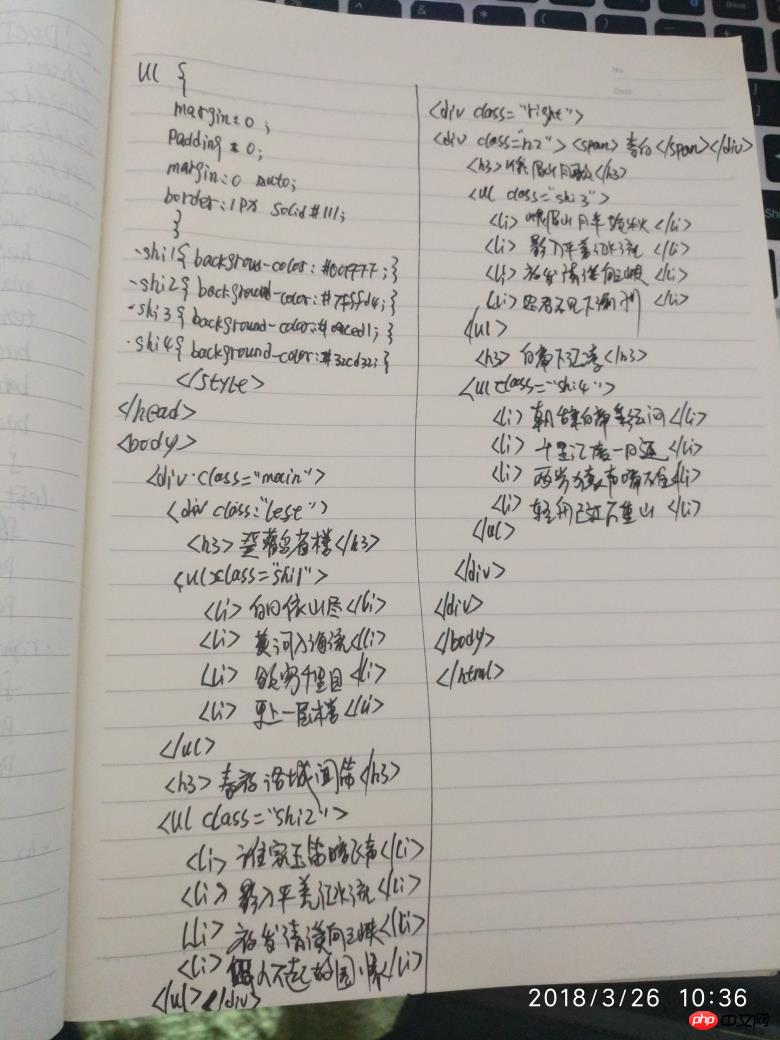 ul {
margin: 0;
padding: 0;
margin: 0 auto;
border: 1px solid #111;
}
.shi1{ backgroud-color: #00ffff; }
.shi2{ background-color: #7fffd4; }
.shi3{ background-color: #00ced1; }
.shi4{ background-color: #32cd32; }
</style>
</head>
<body>
<div class="main">
<div class="lest">
<h3>登鹳雀楼</h3>
<ul class="shi1">
<li>白日依山尽</li>
<li>黄河入海流</li>
<li>欲穷千里目</li>
<li>更上一层楼</li>
</ul>
<h3>春夜洛城闻笛</h3>
<ul class="shi2">
<li>谁家玉笛暗飞声</li>
<li>影入平羌江水流</li>
<li>夜发清溪向三峡</li>
<li>人不起故园情</li>
</ul></div>
<div class="right">
<div class="rr2"><span>李白</span></div>
<h3>峨眉山月歌</h3>
<ul class="shi3">
<li>峨眉山月半轮秋</li>
<li>影入平羌江水流</li>
<li>夜发清溪向三峡</li>
<li>思君不见下渝州</li>
</ul>
<h3>白帝下江陵</h3>
<ul class="shi4">
<li>朝辞白帝彩云间</li>
<li>千里江陵一日还</li>
<li>两岸猿声啼不住</li>
<li>轻舟已过万重山</li>
</ul>
</div>
</div>
</body>
</html>
2018/3/26 10:36
php中文网